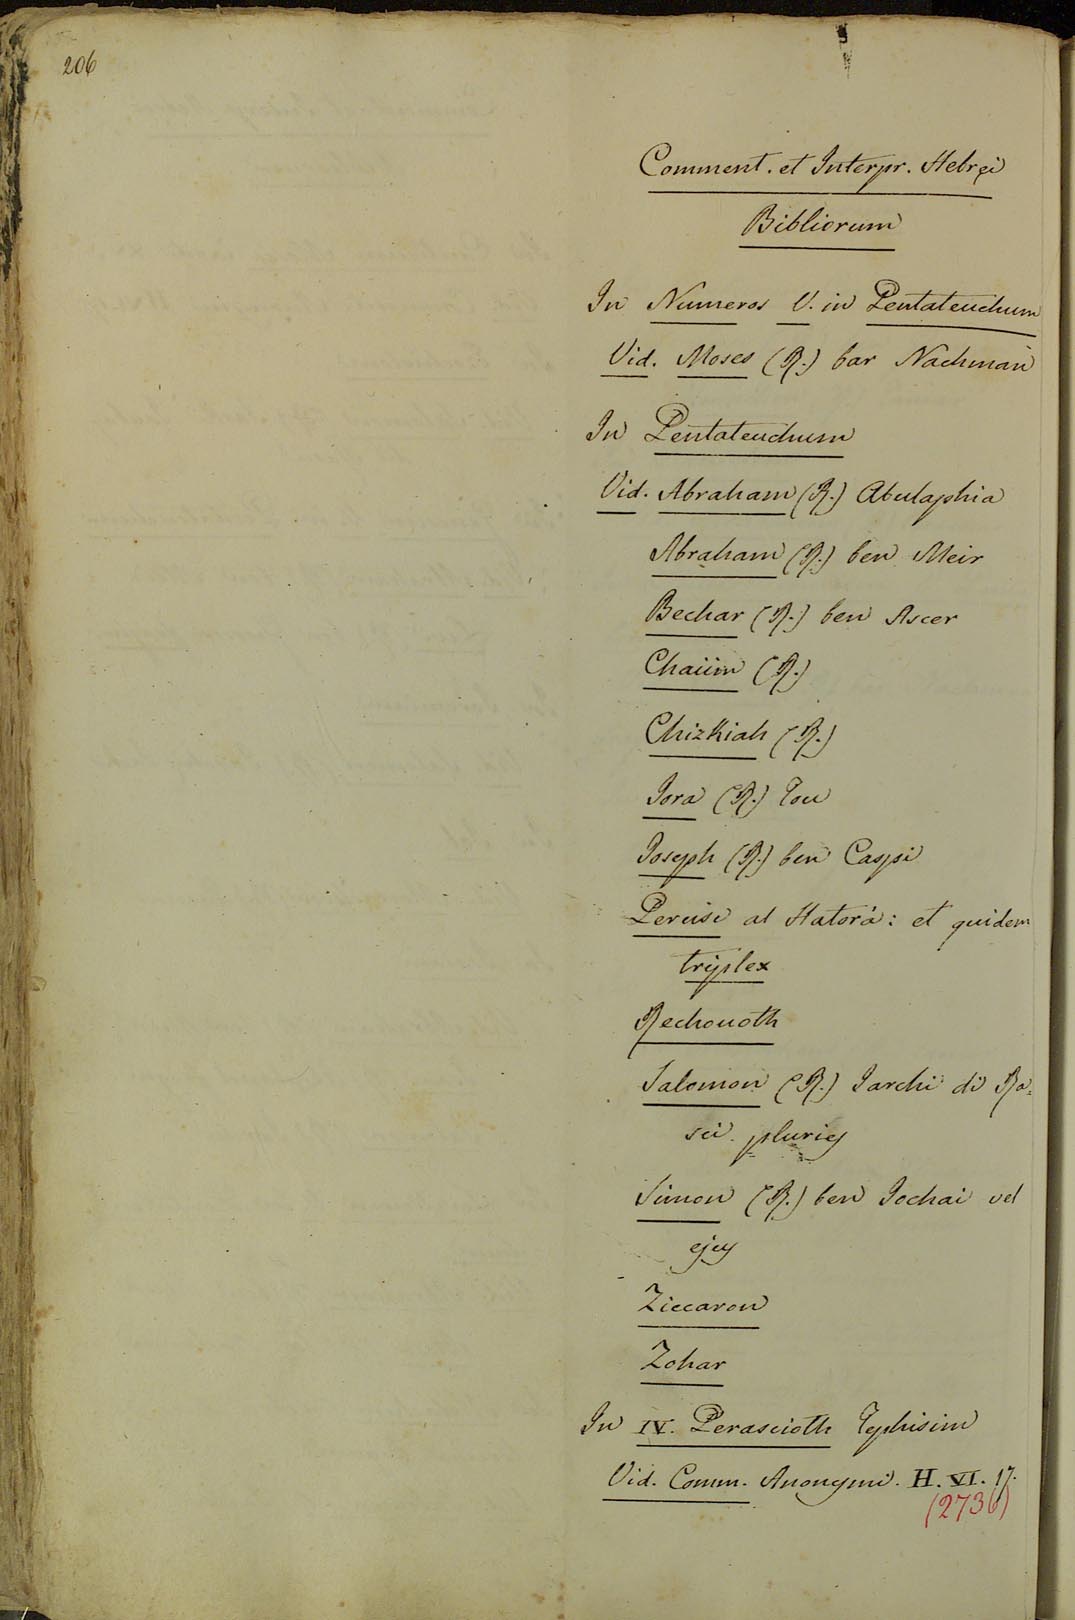 206
Comment. et Interpr. Hebręi
Bibliorum
In Numeros V. in Pentateuchum
Vid. Moses (R.) bar Nachman
In Pentateuchum
Vid. Abraham (R.) Abulaphia
Abraham (R.) ben Meir
Bechar (R.) ben Ascer
Chaiim (R.)
Chizkiah (R.)
Jora (R.) Tou
Joseph (R.) ben Caspi
Peruse al Hatorà: et quidem
triplex
Rechouoth
Salomon (R.) Jarchi di Ra-
sci. pluries
Simon (R.) ben Jochai vel
ejus
Ziccaron
Zohar
In IV. Perascioth Tephisim
Vid. Comm. Anonymi. H. VI. 17.
(2736)